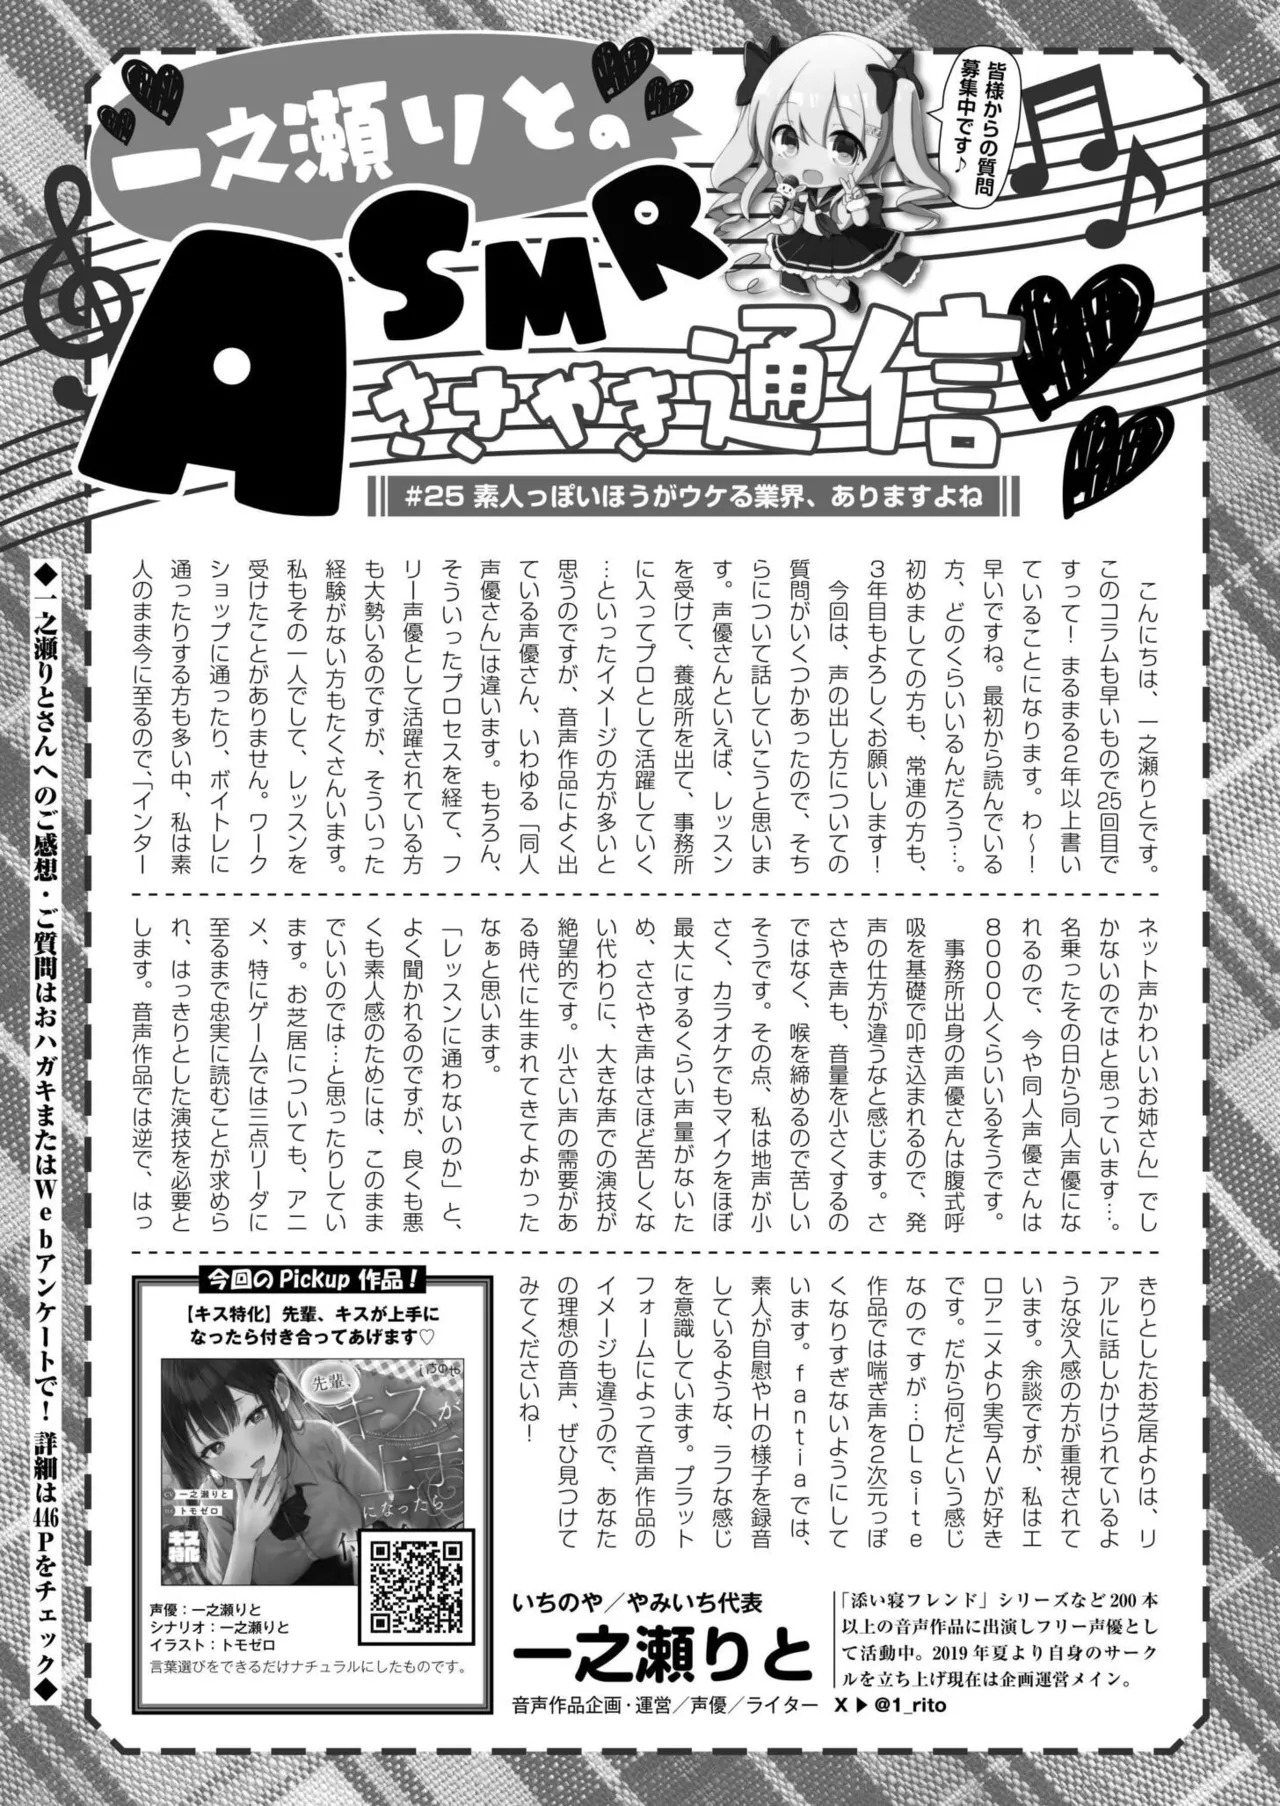 一之瀬りとの
ASMR
ささやき通信
皆様からの質問
募集中です♪
#25 素人っぽいほうがウケる業界、ありますよね
こんにちは、一之瀬りとです。
このコラムも早いもので25回目で
すって！まるまる2年以上書い
ていることになります。わ〜！
早いですね。最初から読んでいる
方、どのくらいいるんだろう…。
初めましての方も、常連の方も、
3年目もよろしくお願いします！
今回は、声の出し方についての
質問がいくつかあったので、そち
らについて話していこうと思いま
す。声優さんといえば、レッスン
を受けて、養成所を出て、事務所
に入ってプロとして活躍していく
…といったイメージの方が多いと
思うのですが、音声作品によく出
ている声優さん、いわゆる「同人
声優さん」は違います。もちろん、
そういったプロセスを経て、フ
リー声優として活躍されている方
も大勢いるのですが、そういった
経験がない方もたくさんいます。
私もその一人でして、レッスンを
受けたことがありません。ワーク
ショップに通ったり、ボイトレに
通ったりする方も多い中、私は素
人のまま今に至るので、「インター
ネット声かわいいお姉さん」でし
かないのではと思っています…。
名乗ったその日から同人声優にな
れるので、今や同人声優さんは
8000人くらいいるそうです。
事務所出身の声優さんは腹式呼
吸を基礎で叩き込まれるので、発
声の仕方が違うなと感じます。さ
さやき声も、音量を小さくするの
ではなく、喉を締めるので苦しい
そうです。その点、私は地声が小
さく、カラオケでもマイクをほぼ
最大にするくらい声量がないた
め、ささやき声はさほど苦しくな
い代わりに、大きな声での演技が
絶望的です。小さい声の需要があ
る時代に生まれてきてよかった
なぁと思います。
「レッスンに通わないのか」と、
よく聞かれるのですが、良くも悪
くも素人感のためには、このまま
でいいのでは…と思ったりしてい
ます。お芝居についても、アニ
メ、特にゲームでは三点リーダに
至るまで忠実に読むことが求めら
れ、はっきりとした演技を必要と
します。音声作品では逆で、はっ
きりとしたお芝居よりは、リ
アルに話しかけられているよ
うな没入感の方が重視されて
います。余談ですが、私はエ
ロアニメより実写AVが好き
です。だから何だという感じ
なのですが…DLsite
作品では喘ぎ声を2次元っぽ
くなりすぎないようにして
います。fantiaでは、
素人が自慰やHの様子を録音
しているような、ラフな感じ
を意識しています。プラット
フォームによって音声作品の
イメージも違うので、あなた
の理想の音声、ぜひ見つけて
みてくださいね！
今回のPickup作品！
【キス特化】先輩、キスが上手に
なったら付き合ってあげます♡
いちのや
先輩、
キスが
上手
になったら
CV 一之瀬りと
トモゼロ
キス
特化
声優：一之瀬りと
シナリオ：一之瀬りと
イラスト：トモゼロ
言葉選びをできるだけナチュラルにしたものです。
いちのや／やみいち代表
一之瀬りと
音声作品企画・運営／声優／ライター
「添い寝フレンド」シリーズなど200本
以上の音声作品に出演しフリー声優とし
て活動中。2019年夏より自身のサーク
ルを立ち上げ現在は企画運営メイン。
X▶@1_rito
◆一之瀬りとさんへのご感想・ご質問はおハガキまたはWebアンケートで！詳細は446Pをチェック◆